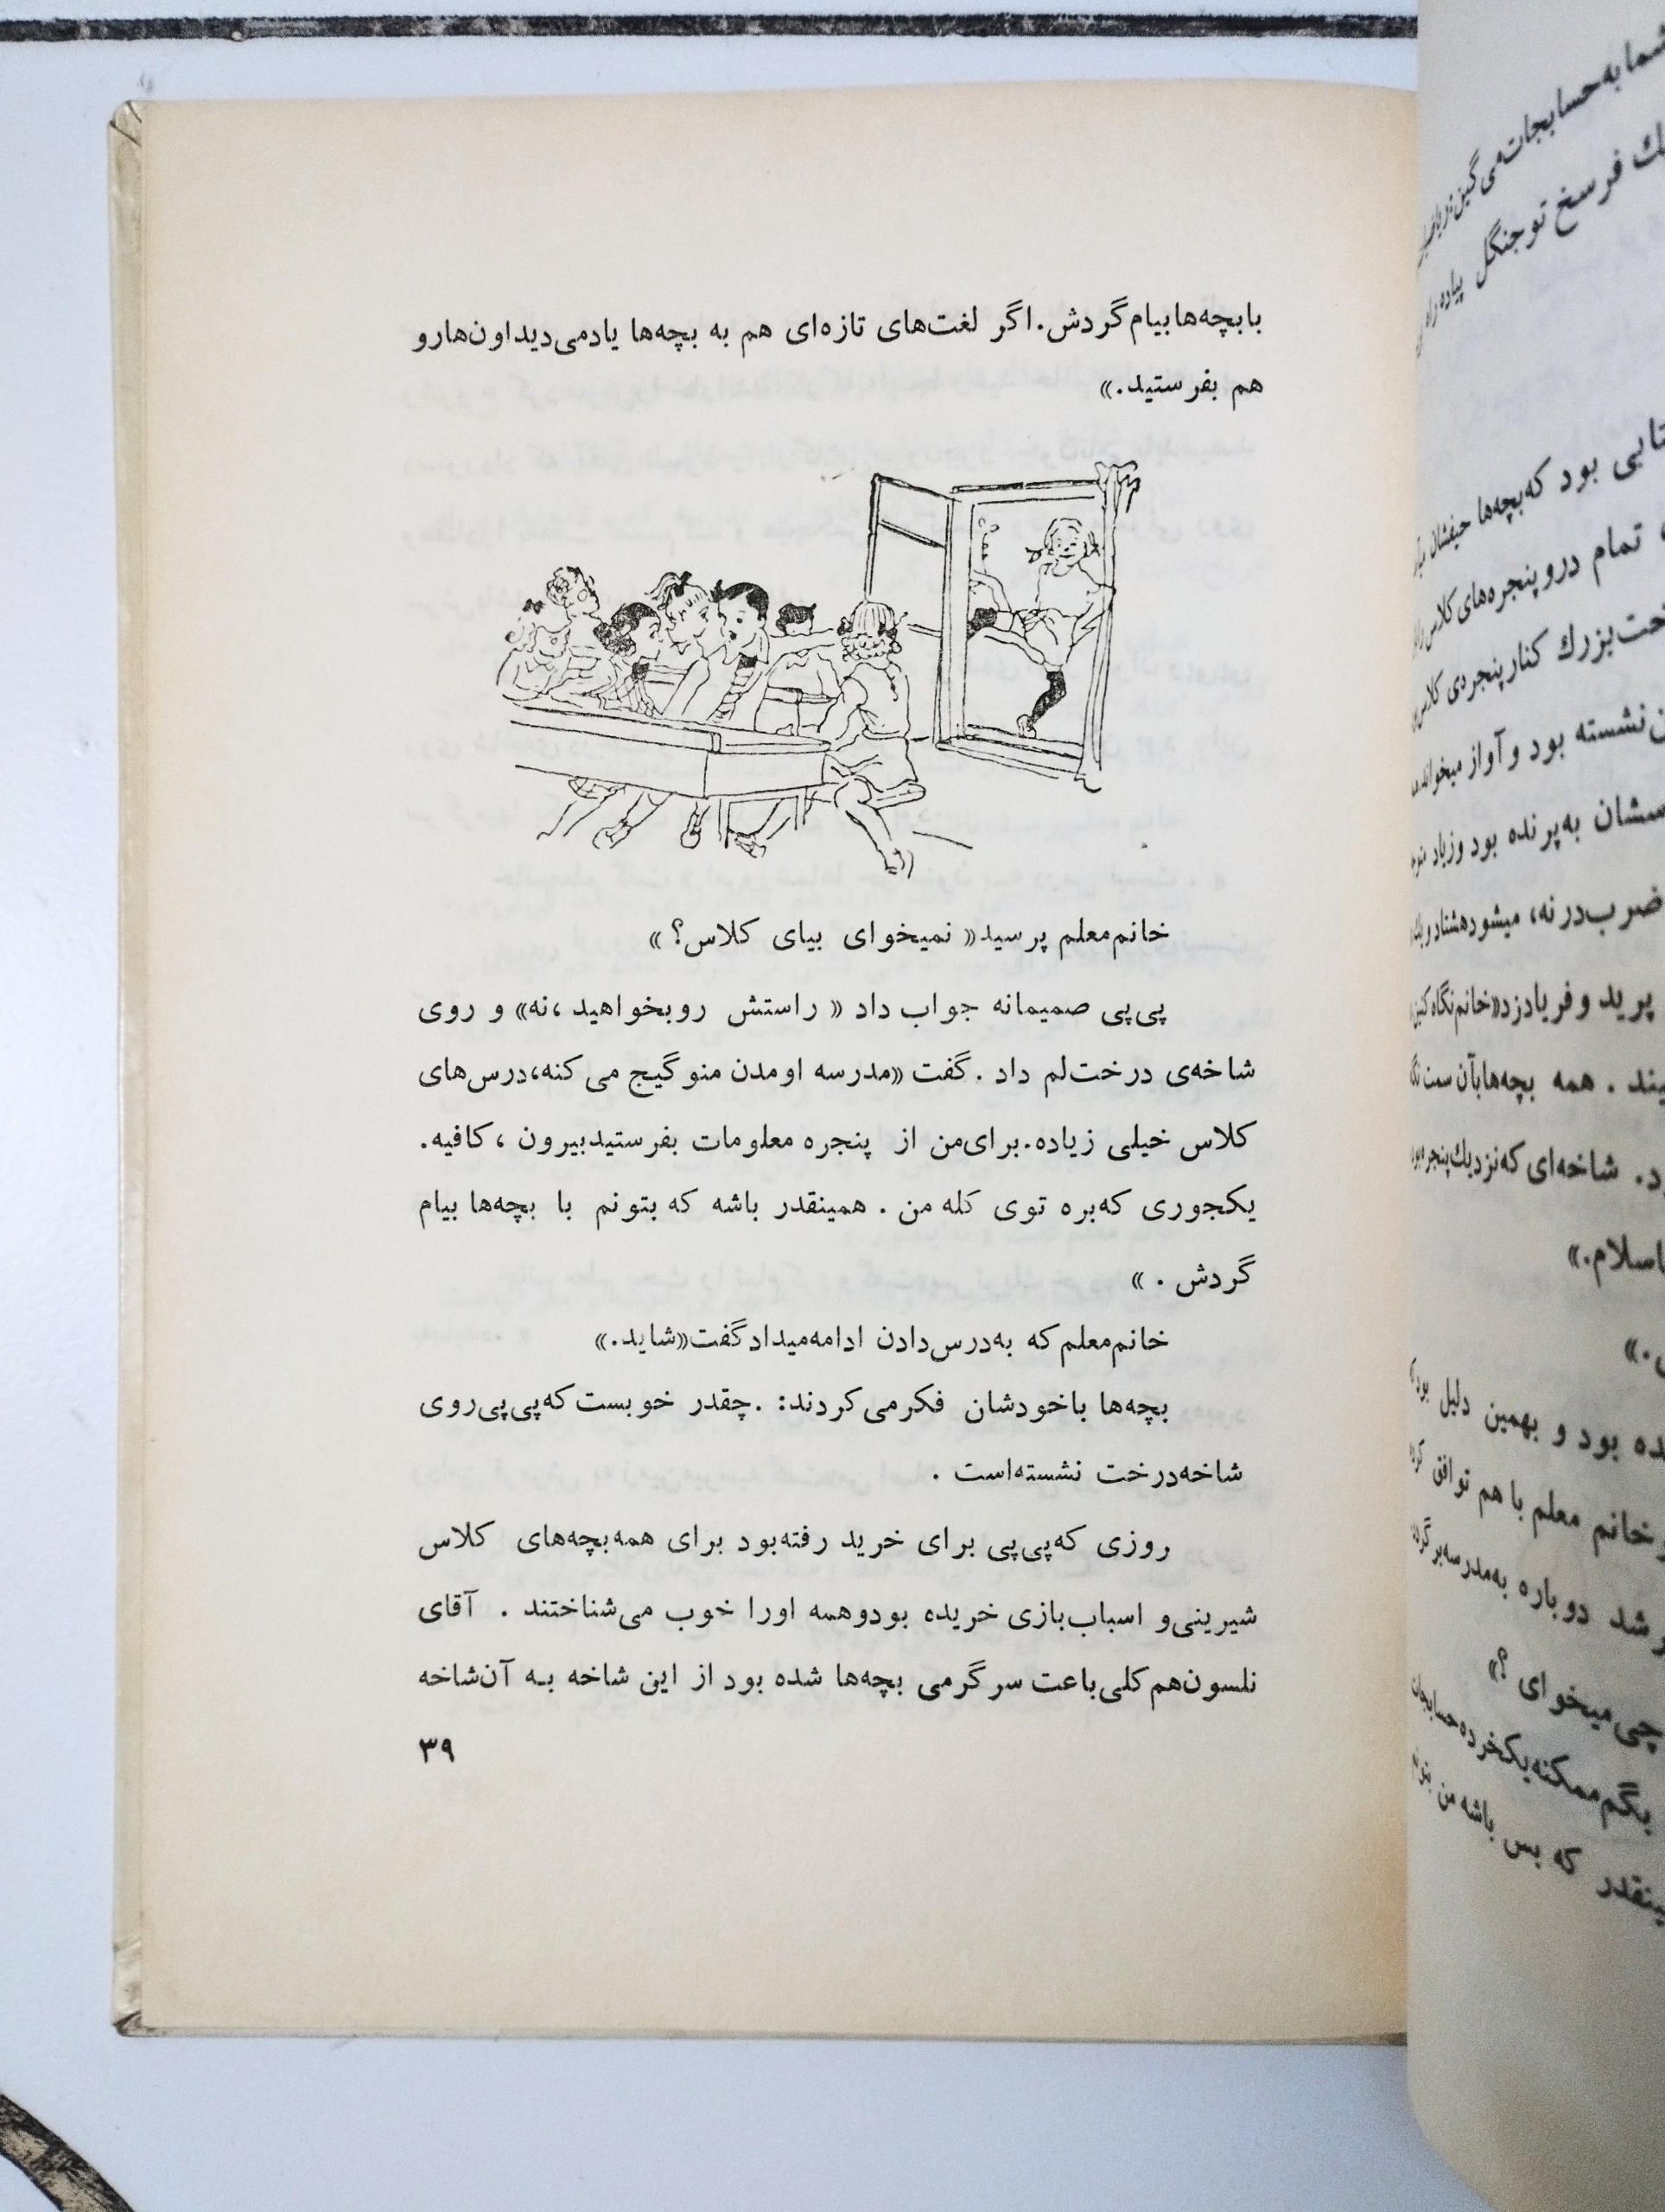 بابچه‌هابیام‌گردش.اگر لغت‌های تازه‌ای هم به بچه‌ها یادمی‌دیداون‌هارو
هم بفرستید.»
خانم‌معلم پرسید« نمیخوای بیای کلاس؟ »
پی‌پی صمیمانه جواب داد « راستش روبخواهید ،نه» و روی
شاخه‌ی درخت‌لم داد . گفت «مدرسه اومدن منوگیج می‌کنه،درس‌های
کلاس خیلی زیاده.برای‌من از پنجره معلومات بفرستیدبیرون ،کافیه.
یکجوری که‌بره توی کله من . همینقدر باشه که بتونم با بچه‌ها بیام
گردش . »
خانم‌معلم که به‌درس‌دادن ادامه‌میدادگفت«شاید.»
بچه‌ها باخودشان فکرمی‌کردند: .چقدر خوبست‌که‌پی‌پی‌روی
شاخه‌درخت نشسته‌است .
روزی که‌پی‌پی برای خرید رفته‌بود برای همه‌بچه‌های کلاس
شیرینی‌و اسباب‌بازی خریده بودوهمه اورا خوب می‌شناختند . آقای
نلسون‌هم‌کلی‌باعت سرگرمی بچه‌ها شده بود از این شاخه به آن‌شاخه
۳۹
شما به‌حسابجات‌می‌گین
فرسخ توجنگل پیاده
بود که‌بچه‌ها
تمام درو پنجره‌های کلاس
بزرك کنار پنجره‌ی کلاس
نشسته بود و آواز
به‌پرنده بود وزیاد
ضرب‌درنه، میشودهشتاد
پرید و فریادزد«خانم‌نگاه‌کنین
همه بچه‌هابآن سمت
شاخه‌ای که‌نزدیك‌پنجره
بود و بهمین دلیل بود
خانم معلم با هم توافق
شد دوباره به‌مدرسه‌برگرده
چی‌میخوای ؟»
بگم‌ممکنه‌یکخرده‌حسابجات
که بس باشه من